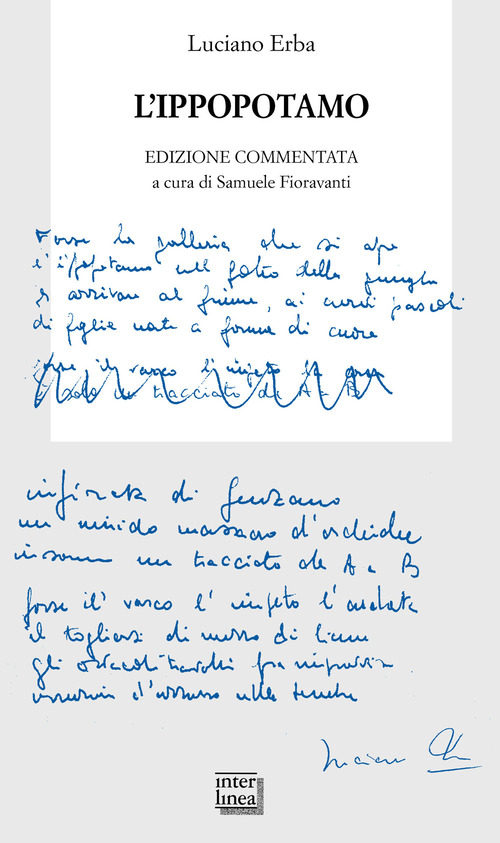 Luciano Erba
L'IPPOPOTAMO
EDIZIONE COMMENTATA
a cura di Samuele Fioravanti
Forse la galleria che si apre
l'ippopotamo nel folto della giungla
per arrivare al fiume, ai curvi pascoli
di foglie nate a forma di cuore
forse il varco l'impeto la
è solo un tracciato da A a B
infiorata di Genzano
un umido massacro d'orchidee
insomma un tracciato da A a B
forse il varco l' impeto l'andata
il togliersi di mezzo di liane
gli ostacoli fra
Luciano
inter
linea